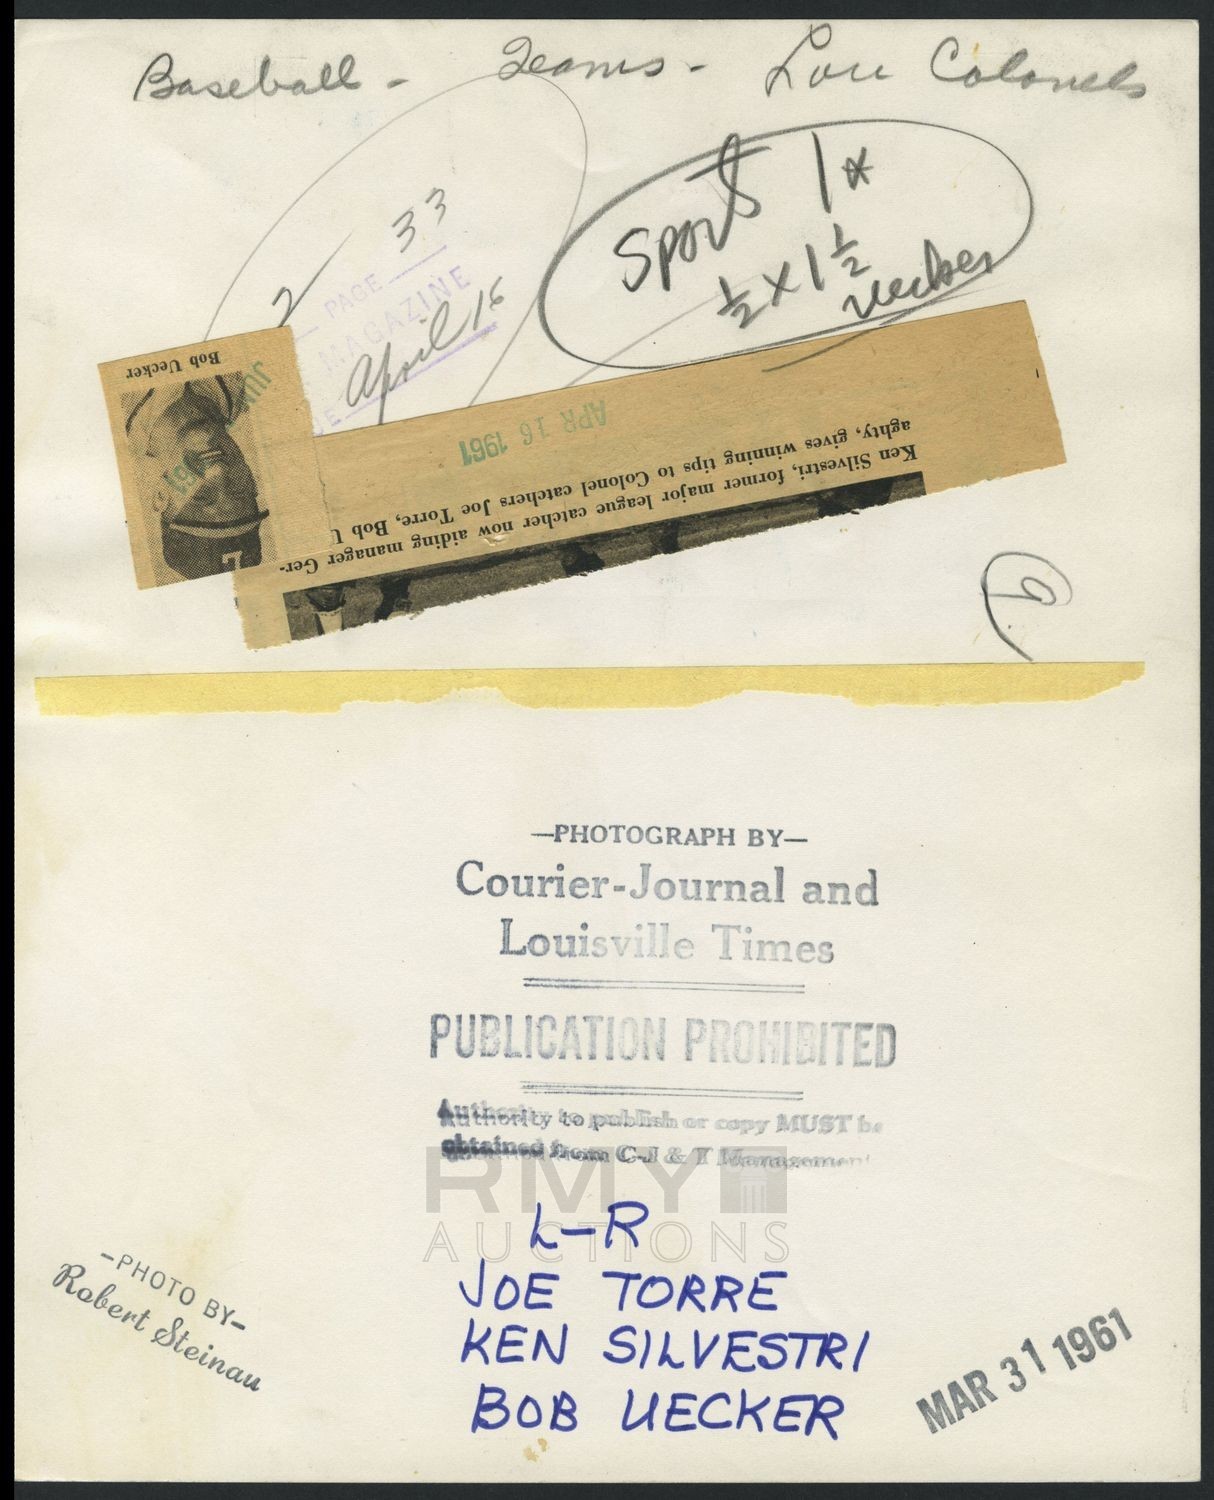 Baseball - Teams - Lou Colonels
Sports 1*
½ x 1½
Uecker
2
PAGE 33
MAGAZINE
April 16
Bob Uecker
JUN
1961
APR 16 1961
Ken Silvestri, former major league catcher now aiding manager Ger-
aghty, gives winning tips to Colonel catchers Joe Torre, Bob U
—PHOTOGRAPH BY—
Courier-Journal and
Louisville Times
PUBLICATION PROHIBITED
Authority to publish or copy MUST be
obtained from C-J & T Management
RMY
AUCTIONS
L-R
JOE TORRE
KEN SILVESTRI
BOB UECKER
-PHOTO BY-
Robert Steinau
MAR 31 1961